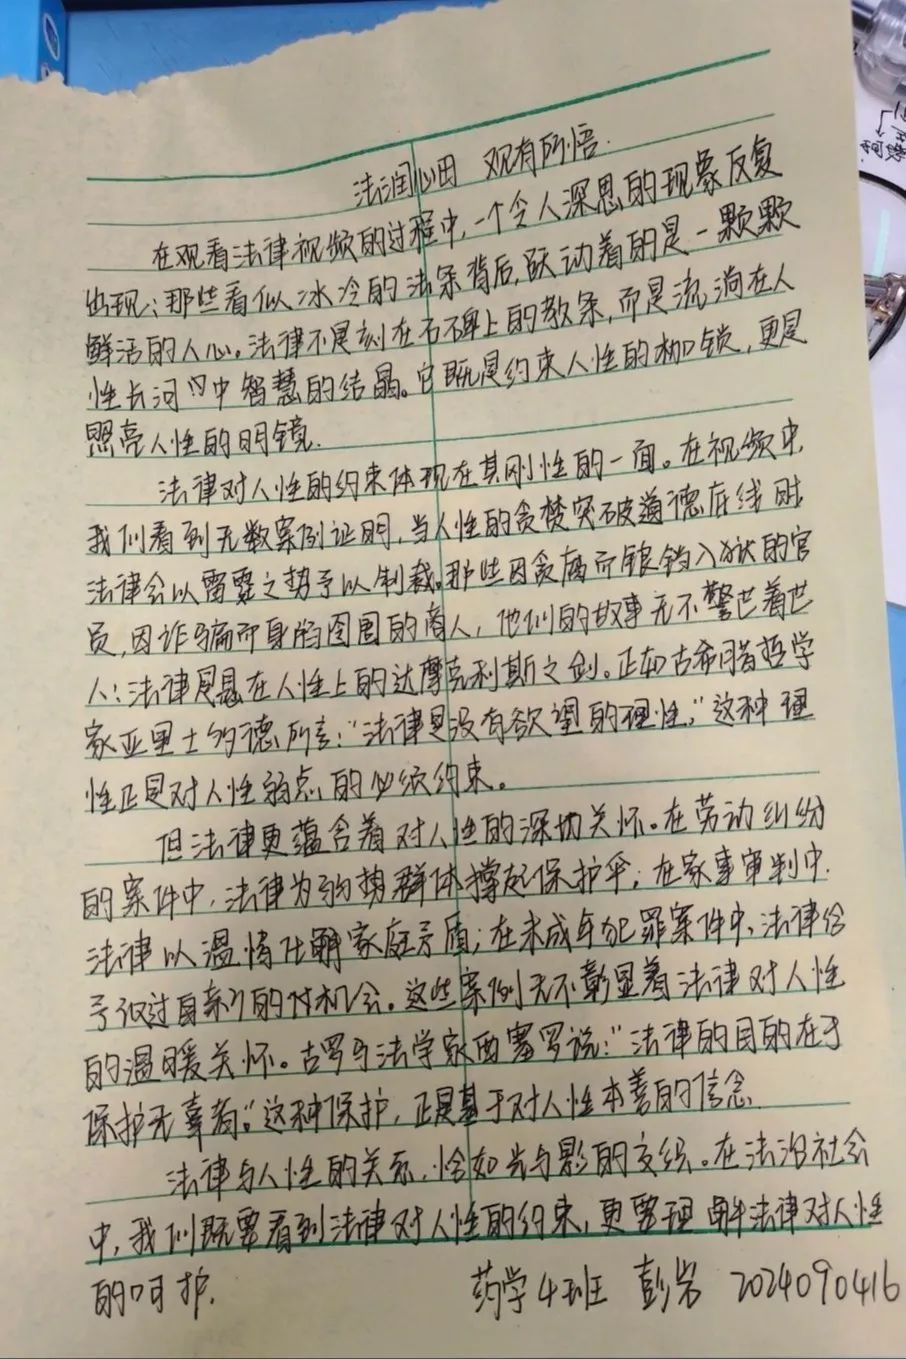 法润心田 观有所悟.
在观看法律视频的过程中,一个令人深思的现象反复
出现:那些看似冰冷的法条背后,跃动着的是一颗颗
鲜活的人心。法律不是刻在石碑上的教条,而是流淌在人
性长河中智慧的结晶。它既是约束人性的枷锁,更是
照亮人性的明镜.
法律对人性的约束体现在其刚性的一面。在视频中,
我们看到无数案例证明,当人性的贪婪突破道德底线时
法律会以雷霆之势予以制裁。那些因贪腐而锒铛入狱的官
员,因诈骗而身陷囹圄的商人,他们的故事无不警世着世
人:法律是悬在人性上的达摩克利斯之剑。正如古希腊哲学
家亚里士多德所言:"法律是没有欲望的理性,"这种理
性正是对人性弱点的必须约束。
但法律更蕴含着对人性的深切关怀。在劳动纠纷
的案件中,法律为弱势群体撑起保护伞;在家事审判中.
法律以温情化解家庭矛盾;在未成年犯罪案件中,法律给
予改过自新的机会。这些案例无不彰显着法律对人性
的温暖关怀。古罗马法学家西塞罗说:"法律的目的在于
保护无辜者。"这种保护,正是基于对人性本善的信念
法律与人性的关系,恰如光与影的交织。在法治社会
中,我们既要看到法律对人性的约束,更要理解法律对人性
的呵护.
药学4班 彭 2024090416